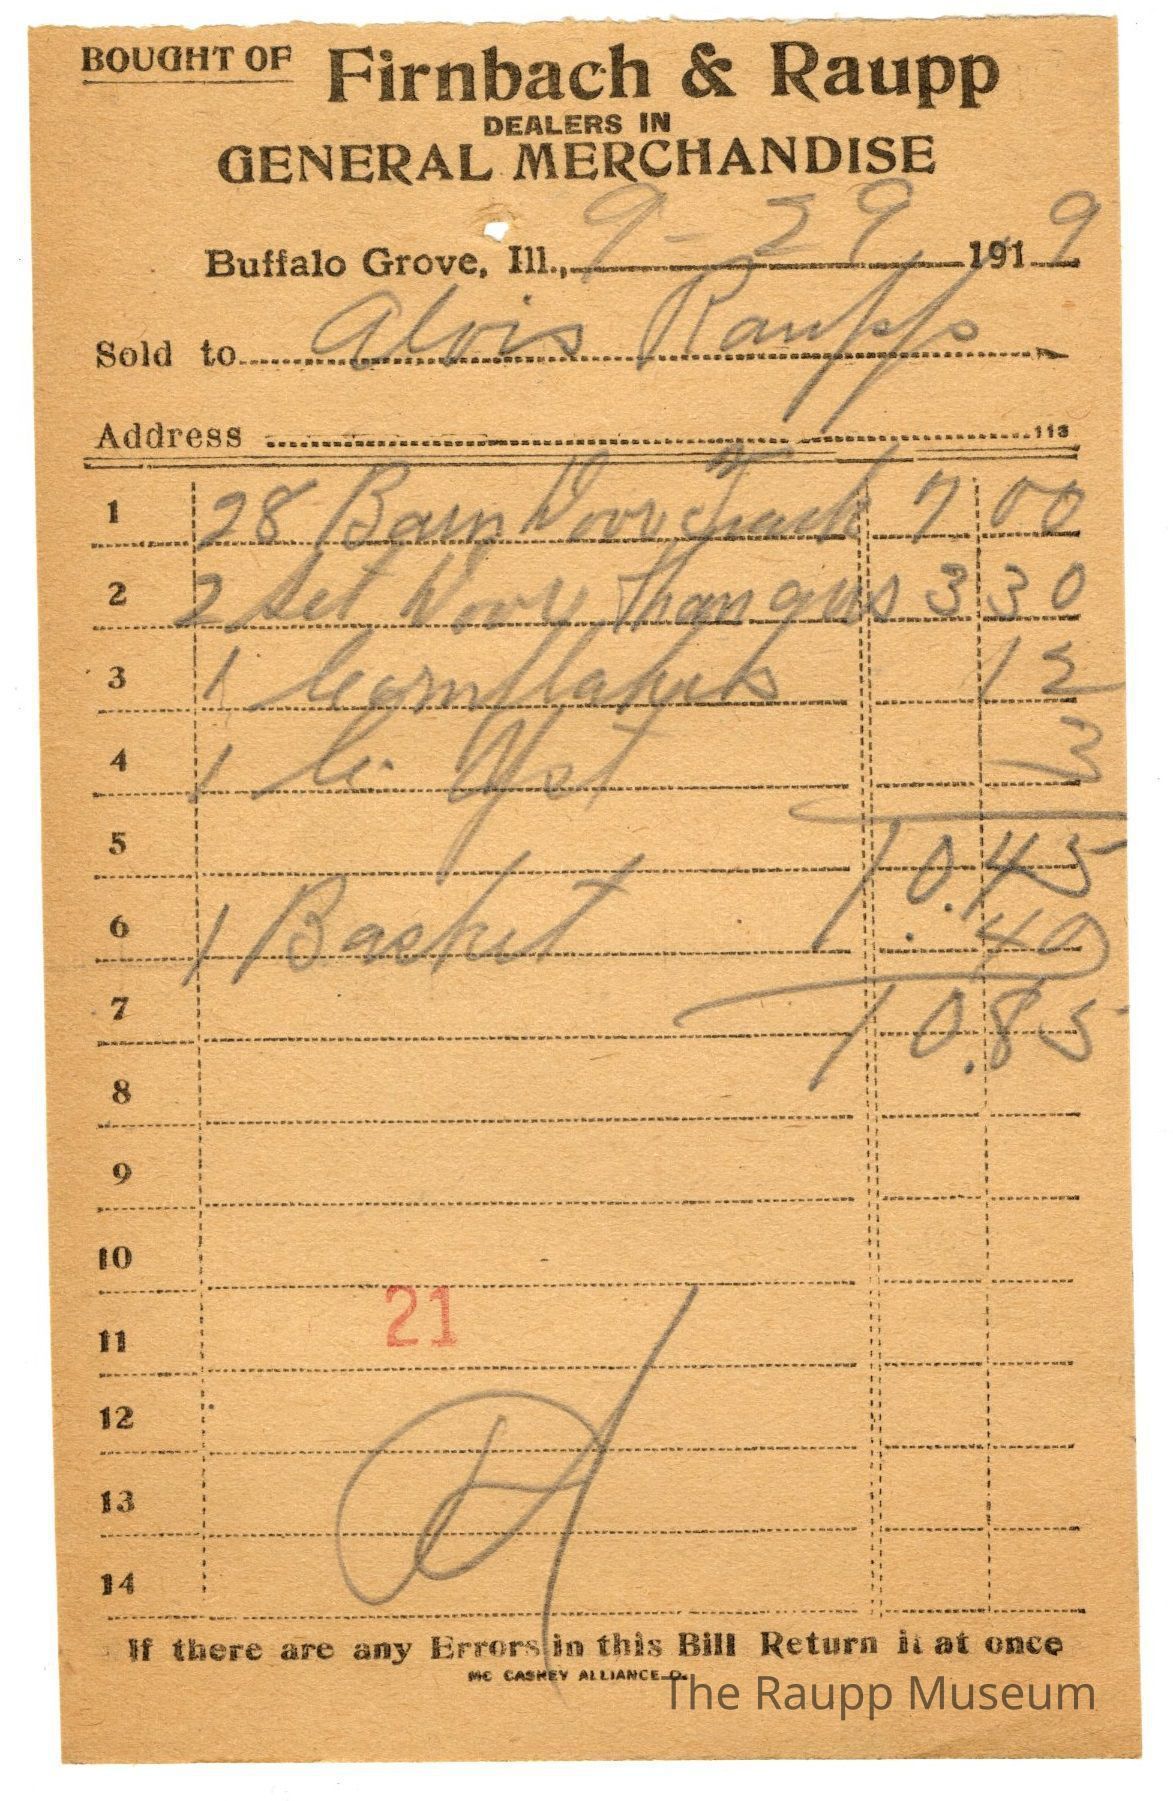 BOUGHT OF Firnbach & Raupp
DEALERS IN
GENERAL MERCHANDISE
Buffalo Grove, Ill., 9-29 1919
Sold to Alois Raupp
Address 113
1 28 Barn Door Track 7 00
2 2 Set Door 3 30
3 1 Cornflakes 12
4 1 C. Yst 3
5 10.45
6 1 Basket 40
7 10.85
8
9
10
21
11
12
13
14
If there are any Errors in this Bill Return it at once
MC CASKEY ALLIANCE O.
The Raupp Museum